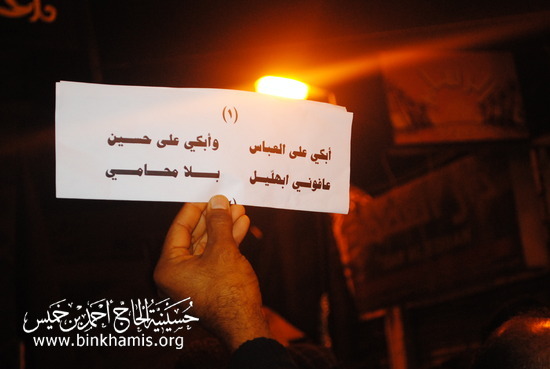 (١)
أبكي على العباس وأبكي على حسين
عافوني ابهليل بلا محامي
حسينية الحاج أحمد بن خميس
www.binkhamis.org